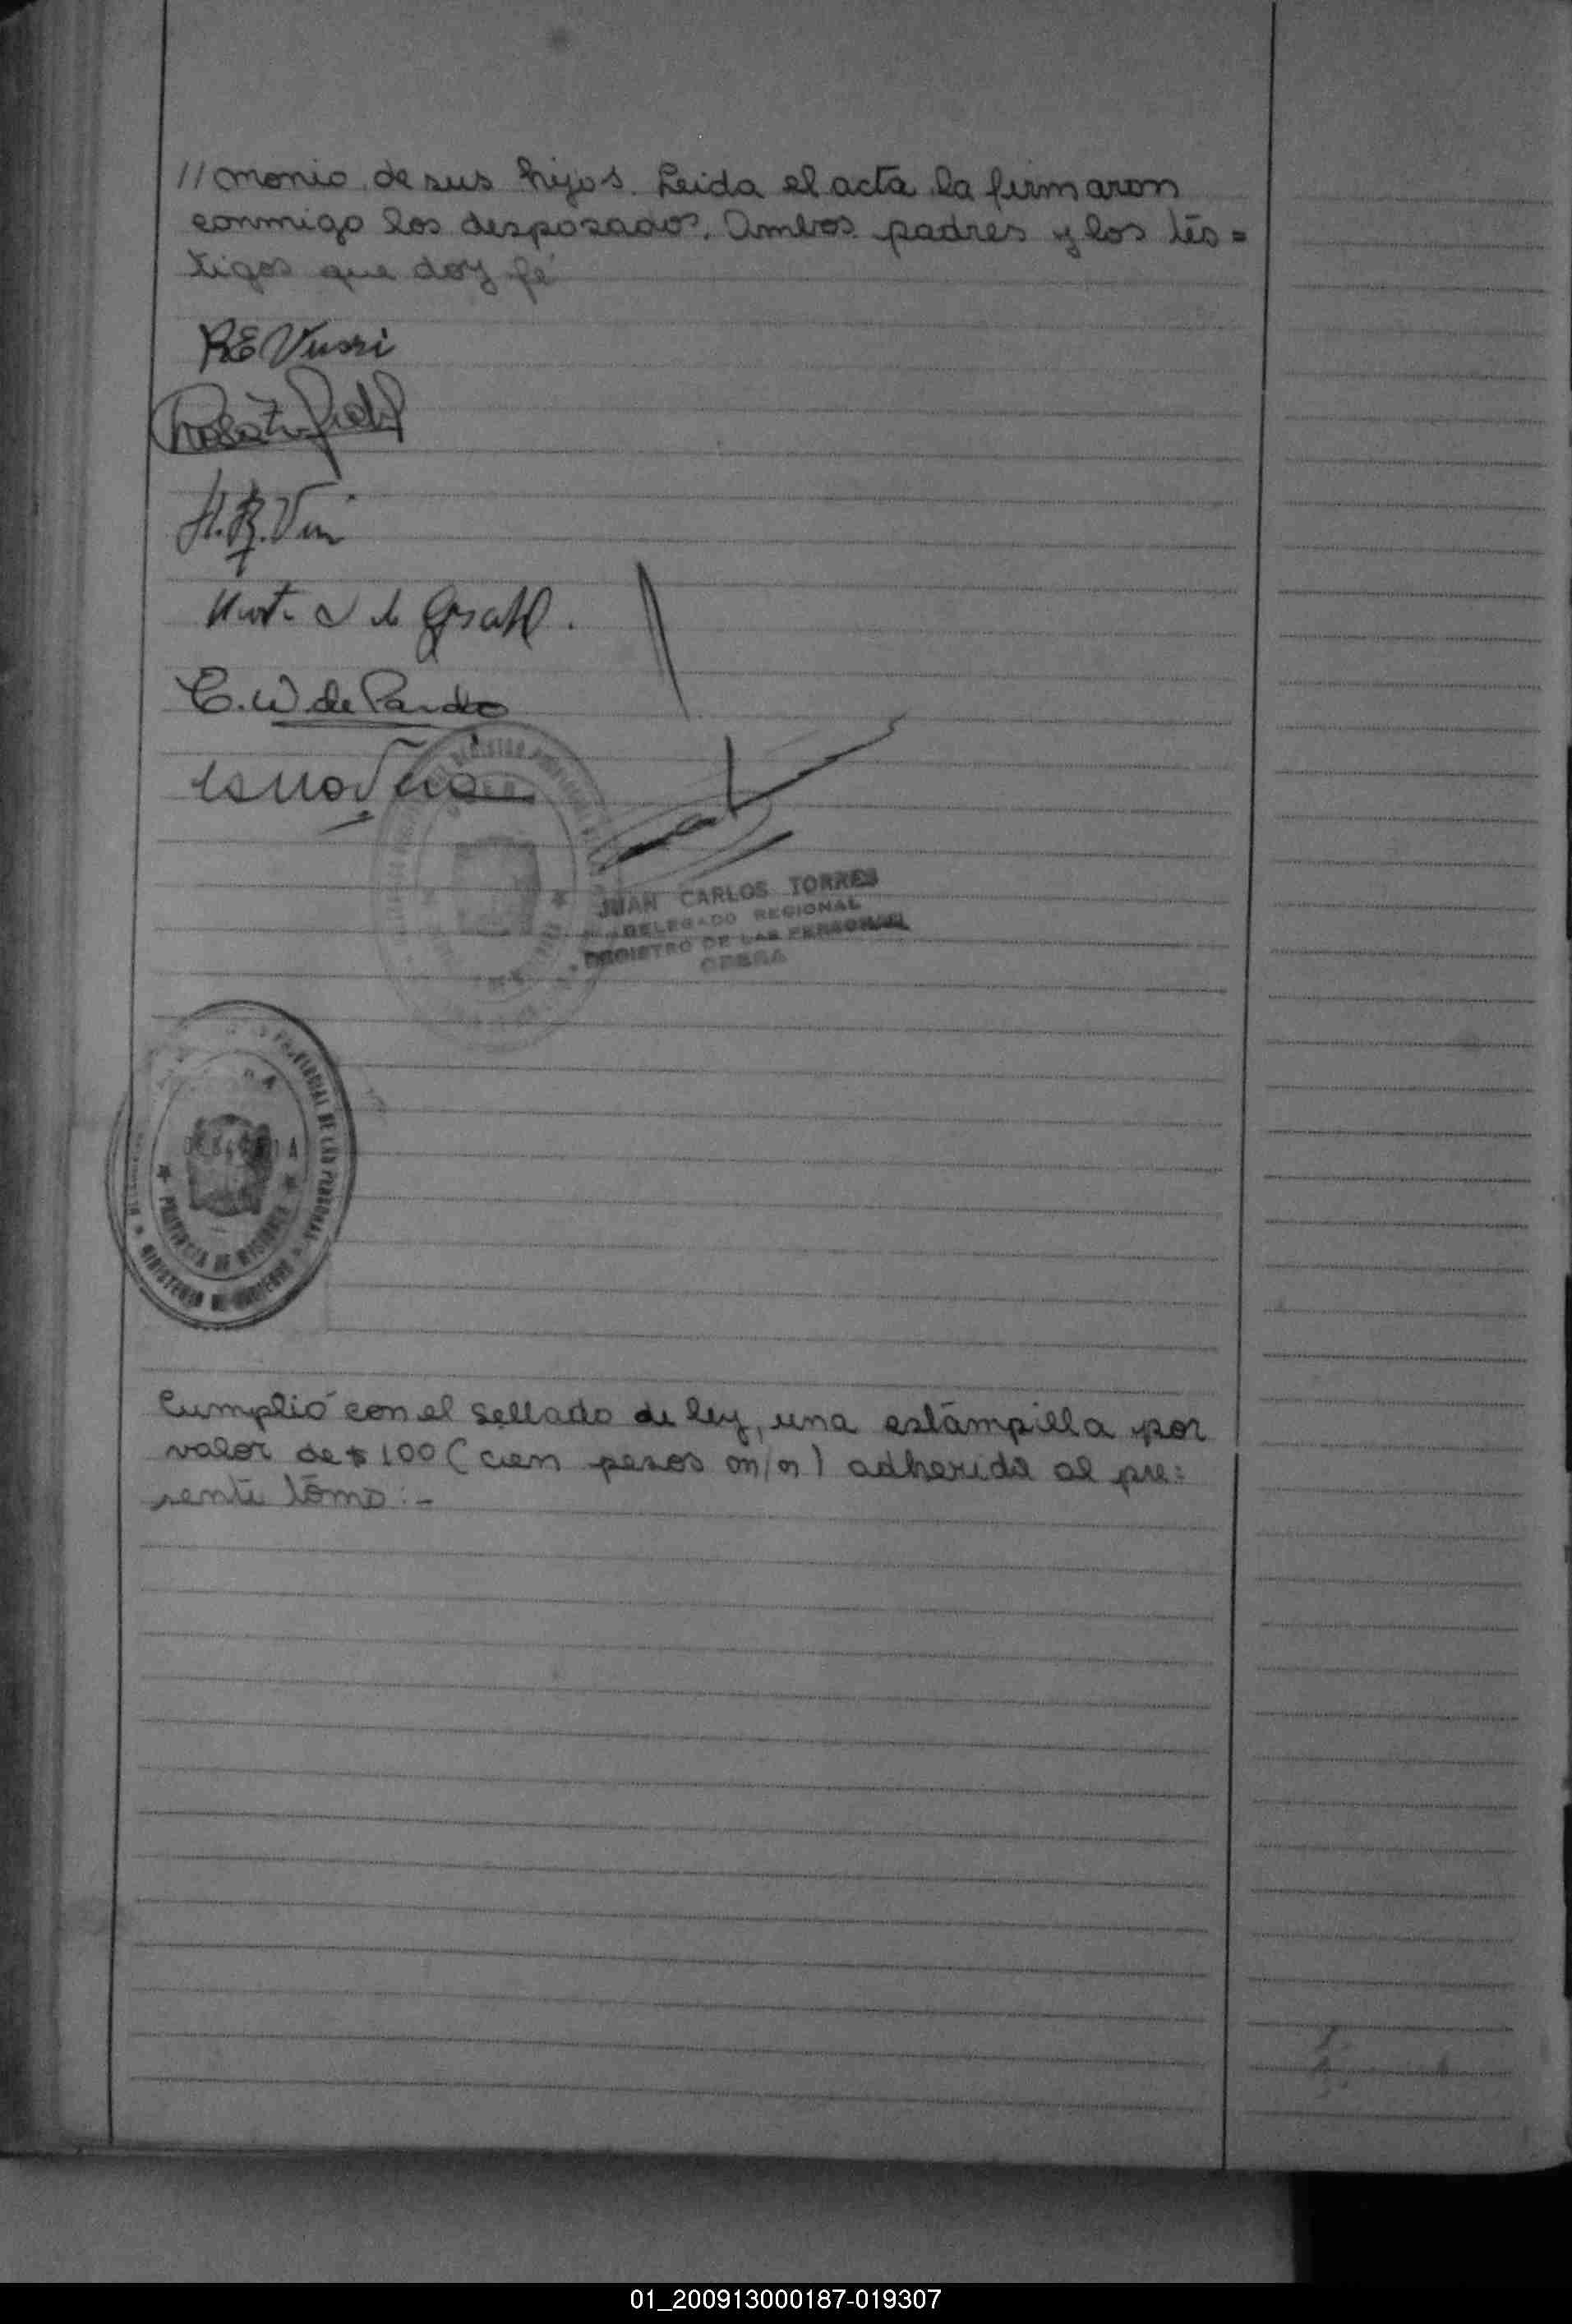 //monio de sus hijos. Leida el acta la firmaron
conmigo los desposados, Ambos padres y los tes=
tigos que doy fé
C. W de Pardo
JUAN CARLOS TORRES
DELEGADO REGIONAL
REGISTRO DE LAS PERSONAS
OBERA
PROVINCIAL DE LAS PERSONAS
PROVINCIA DE MISIONES
MINISTERIO DE GOBIERNO
Cumplió con el sellado de ley, una estampilla por
valor de $ 100 (cien pesos m/n) adherida al pre=
sente tomo:-
01_200913000187-019307